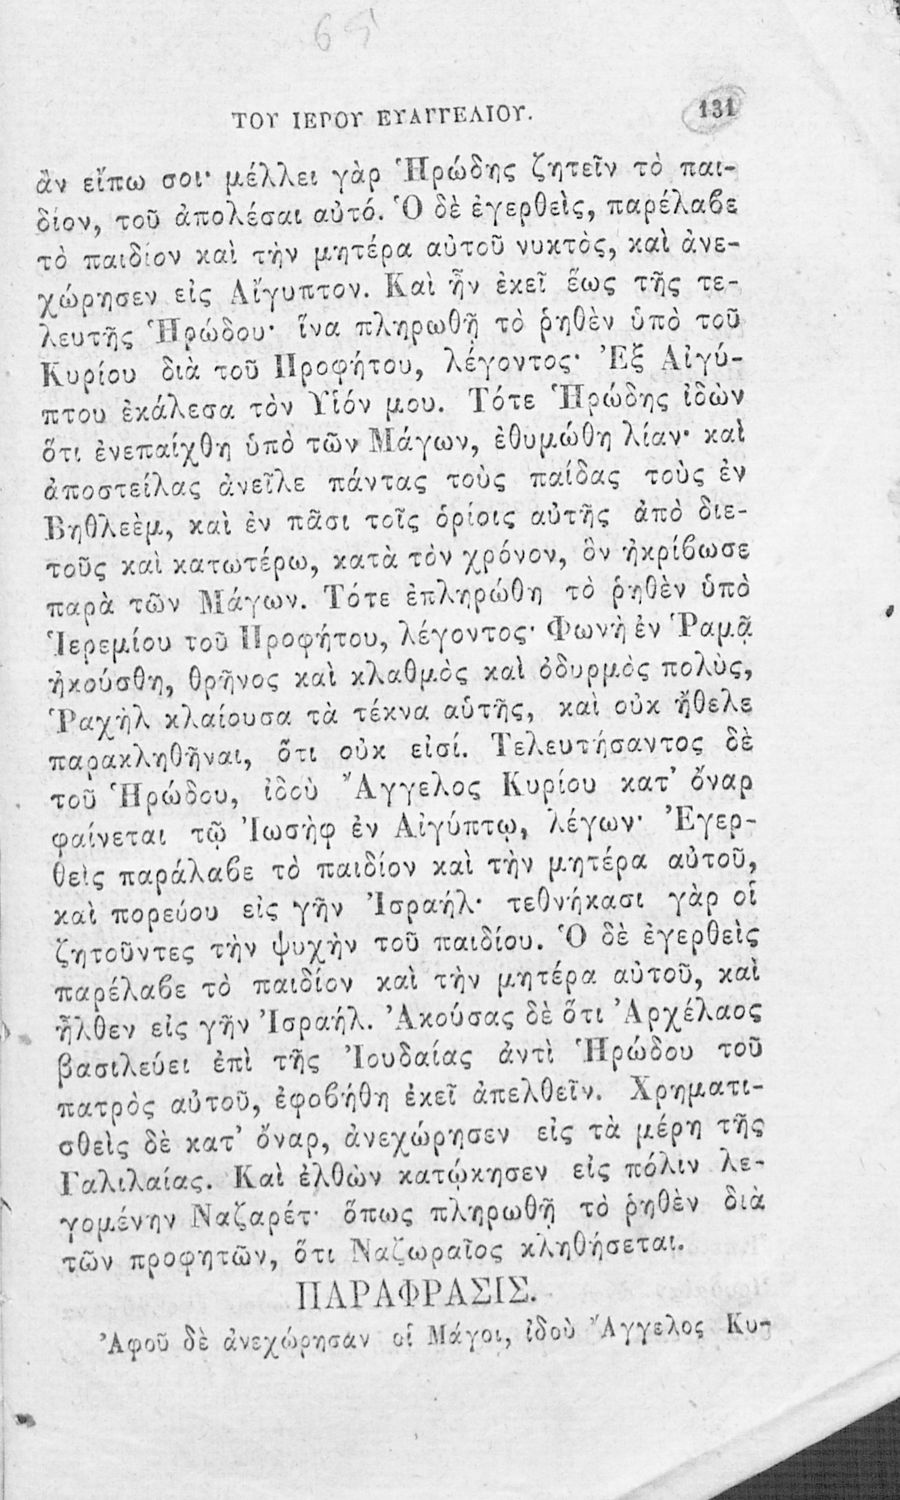 65
ΤΟΥ ΙΕΡΟΥ ΕΥΑΓΓΕΛΙΟΥ. 131
ἂν εἴπω σοι· μέλλει γὰρ Ἡρώδης ζητεῖν τὸ παι-
δίον, τοῦ ἀπολέσαι αὐτό. Ὁ δὲ ἐγερθεὶς, παρέλαβε
τὸ παιδίον καὶ τὴν μητέρα αὐτοῦ νυκτὸς, καὶ ἀνε-
χώρησεν εἰς Αἴγυπτον. Καὶ ἦν ἐκεῖ ἕως τῆς τε-
λευτῆς Ἡρώδου· ἵνα πληρωθῇ τὸ ῥηθὲν ὑπὸ τοῦ
Κυρίου διὰ τοῦ Προφήτου, λέγοντος· Ἐξ Αἰγύ-
πτου ἐκάλεσα τὸν Υἱόν μου. Τότε Ἡρώδης ἰδὼν
ὅτι ἐνεπαίχθη ὑπὸ τῶν Μάγων, ἐθυμώθη λίαν· καὶ
ἀποστείλας ἀνεῖλε πάντας τοὺς παίδας τοὺς ἐν
Βηθλεὲμ, καὶ ἐν πᾶσι τοῖς ὁρίοις αὐτῆς ἀπὸ διε-
τοῦς καὶ κατωτέρω, κατὰ τὸν χρόνον, ὃν ἠκρίβωσε
παρὰ τῶν Μάγων. Τότε ἐπληρώθη τὸ ῥηθὲν ὑπὸ
Ἱερεμίου τοῦ Προφήτου, λέγοντος· Φωνὴ ἐν Ῥαμᾷ
ἠκούσθη, θρῆνος καὶ κλαθμὸς καὶ ὀδυρμὸς πολὺς,
Ῥαχὴλ κλαίουσα τὰ τέκνα αὑτῆς, καὶ οὐκ ἤθελε
παρακληθῆναι, ὅτι οὐκ εἰσί. Τελευτήσαντος δὲ
τοῦ Ἡρώδου, ἰδοὺ Ἄγγελος Κυρίου κατ’ ὄναρ
φαίνεται τῷ Ἰωσὴφ ἐν Αἰγύπτῳ, λέγων· Ἐγερ-
θεὶς παράλαβε τὸ παιδίον καὶ τὴν μητέρα αὐτοῦ,
καὶ πορεύου εἰς γῆν Ἰσραήλ· τεθνήκασι γὰρ οἱ
ζητοῦντες τὴν ψυχὴν τοῦ παιδίου. Ὁ δὲ ἐγερθεὶς
παρέλαβε τὸ παιδίον καὶ τὴν μητέρα αὐτοῦ, καὶ
ἦλθεν εἰς γῆν Ἰσραήλ. Ἀκούσας δὲ ὅτι Ἀρχέλαος
βασιλεύει ἐπὶ τῆς Ἰουδαίας ἀντὶ Ἡρώδου τοῦ
πατρὸς αὐτοῦ, ἐφοβήθη ἐκεῖ ἀπελθεῖν. Χρηματι-
σθεὶς δὲ κατ’ ὄναρ, ἀνεχώρησεν εἰς τὰ μέρη τῆς
Γαλιλαίας. Καὶ ἐλθὼν κατῴκησεν εἰς πόλιν λε-
γομένην Ναζαρέτ· ὅπως πληρωθῇ τὸ ῥηθὲν διὰ
τῶν προφητῶν, ὅτι Ναζωραῖος κληθήσεται.
ΠΑΡΑΦΡΑΣΙΣ.
Ἀφοῦ δὲ ἀνεχώρησαν οἱ Μάγοι, ἰδοὺ Ἄγγελος Κυ-